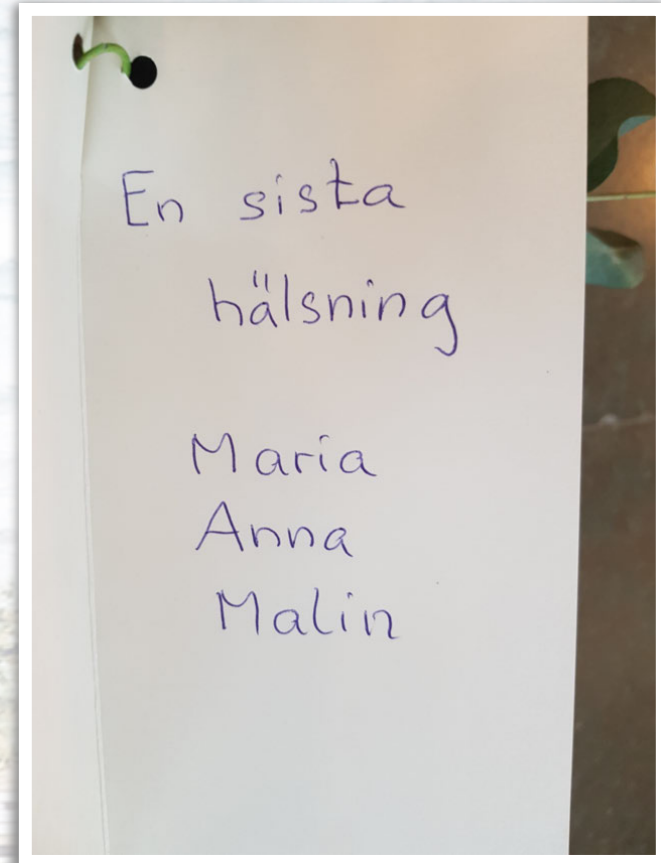 En sista
hälsning
Maria
Anna
Malin